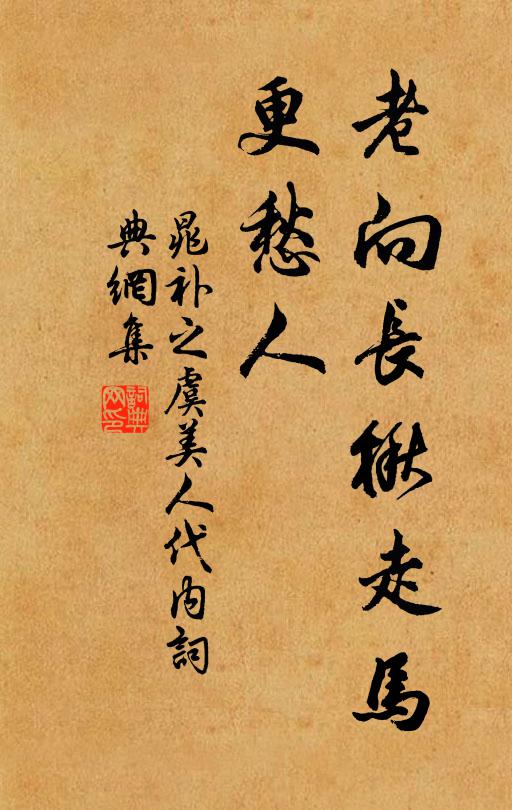 老向長楸走馬
更愁人
晁补之虞美人代內詞
典網集
詞典
网印